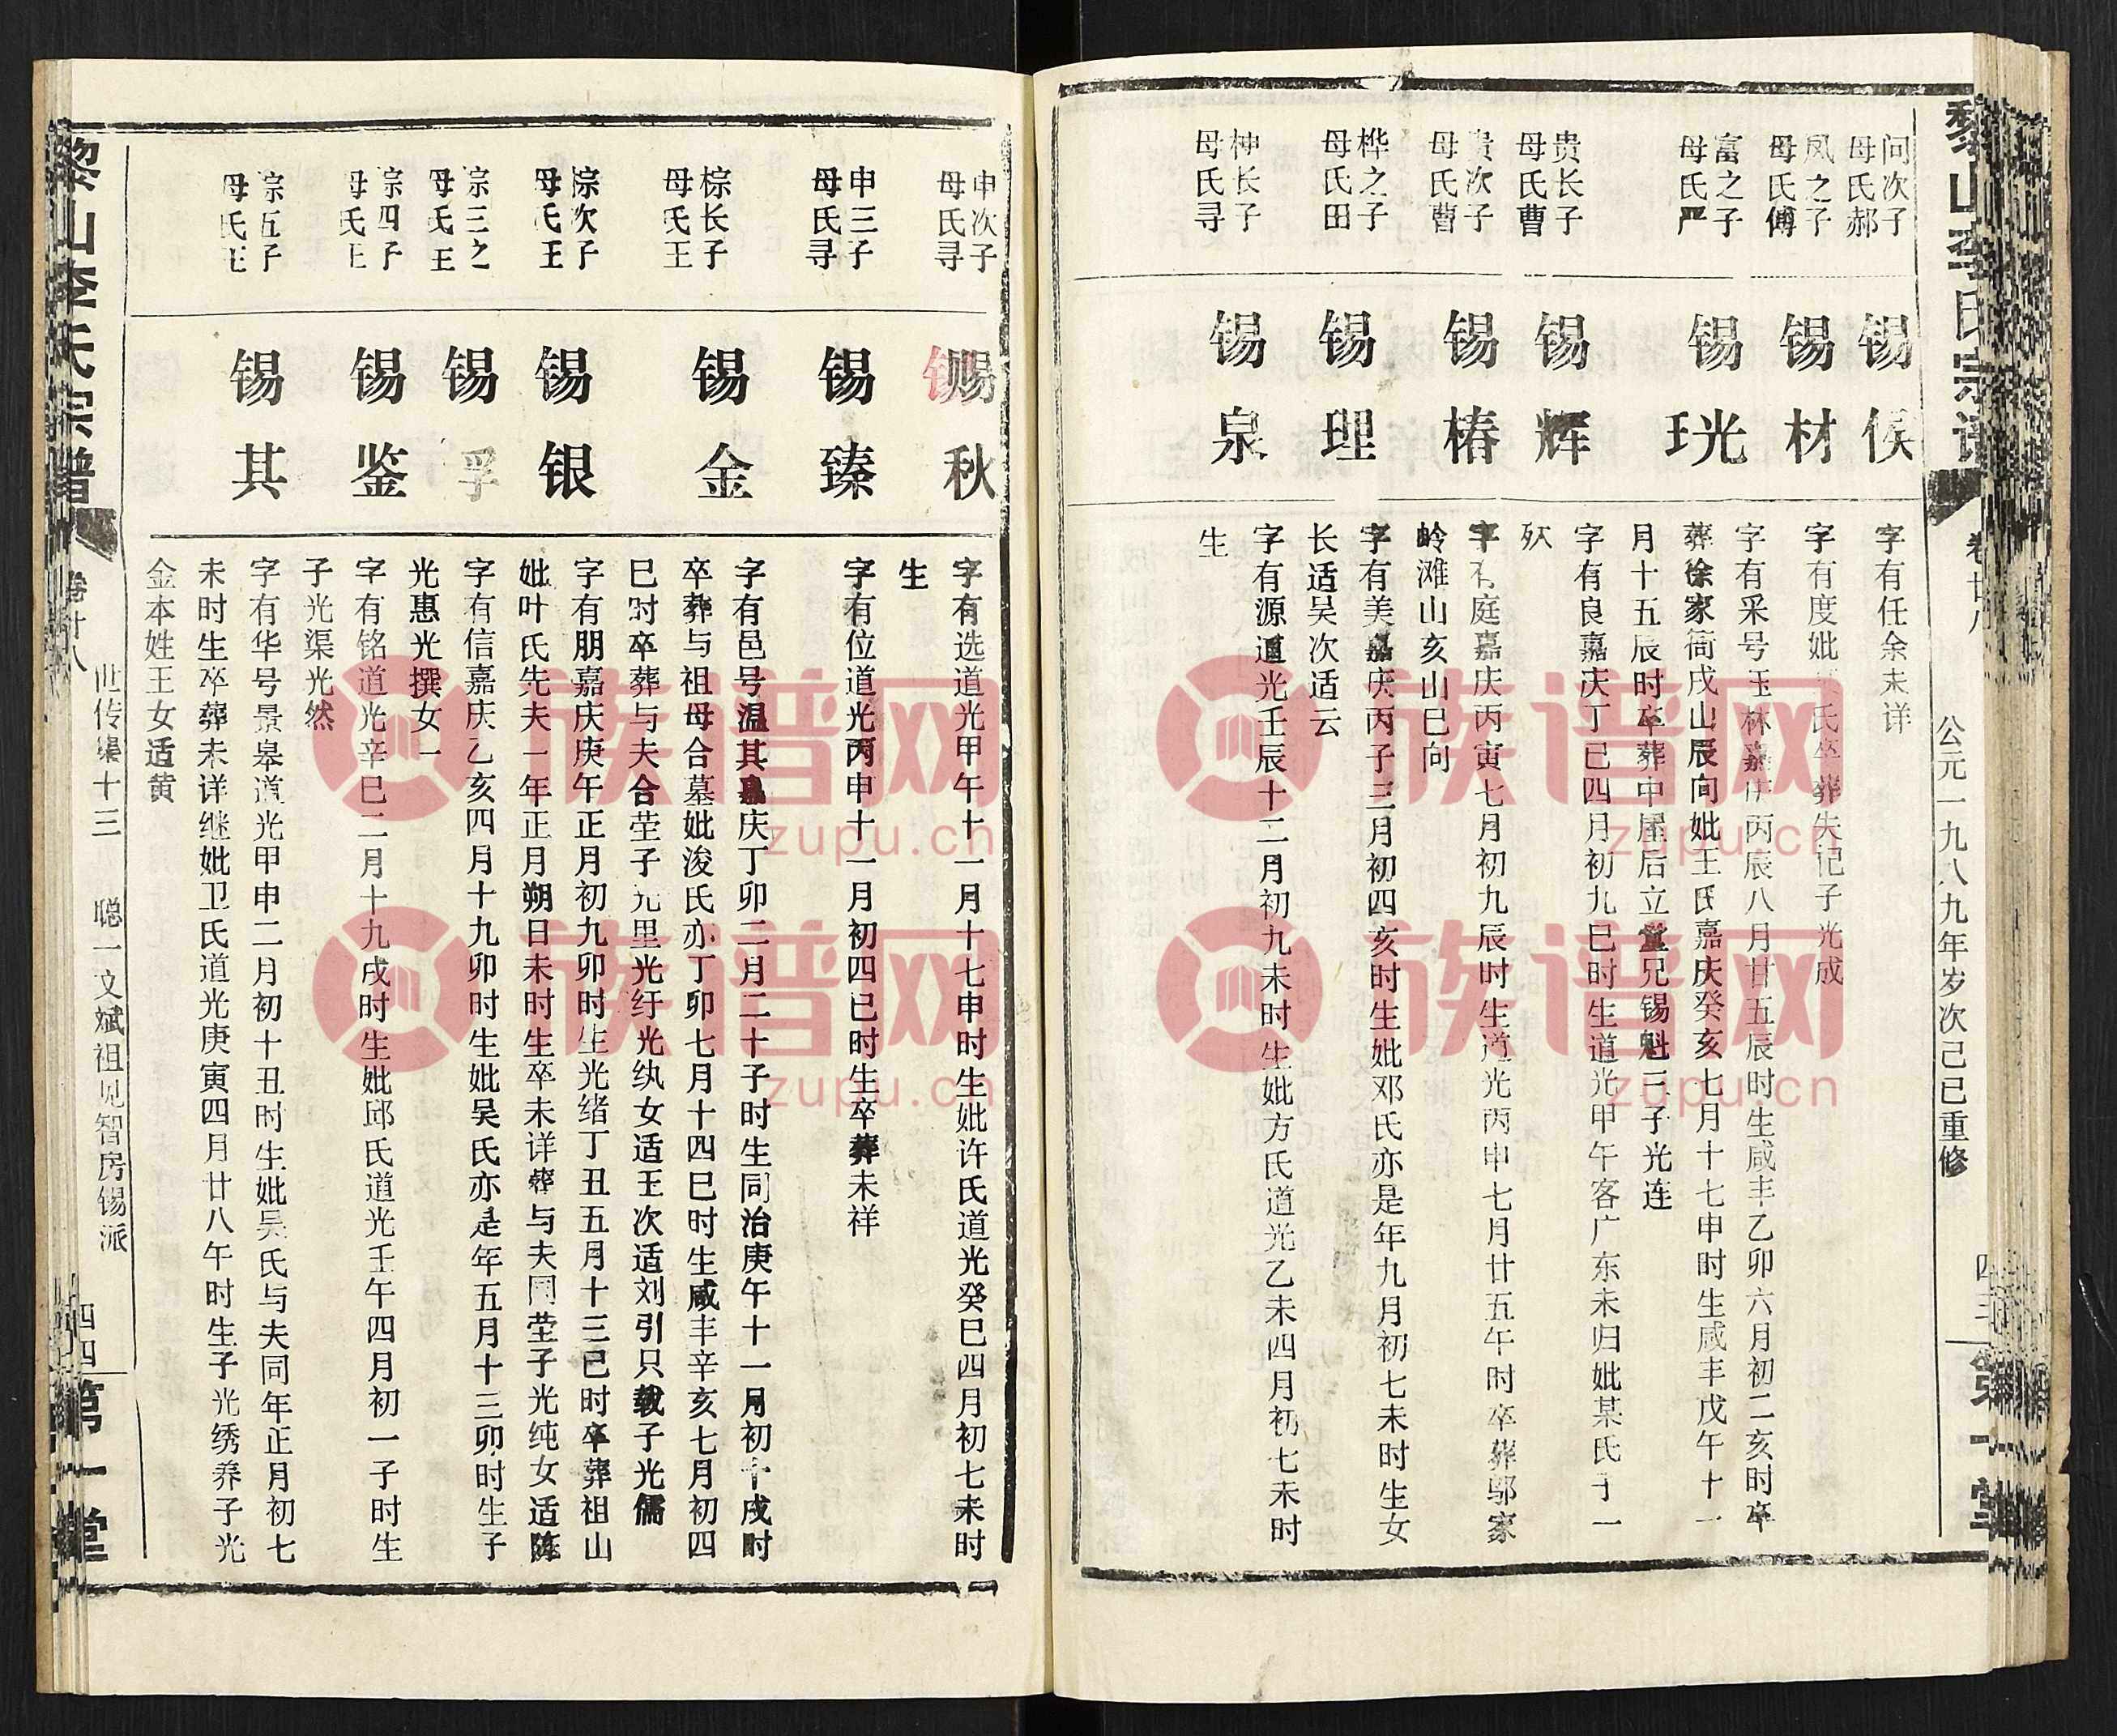 黎山李氏宗谱
公元一九八九年岁次己巳重修
问次子
母氏郝
锡候
字有任余未详
凤之子
母氏傅
锡材
字有度妣氏卒葬失记子光成
富之子
母氏严
锡珖
字有采号玉林嘉庆丙辰八月廿五辰时生咸丰乙卯六月初二亥时卒
葬徐家衕戌山辰向妣王氏嘉庆癸亥七月十七申时生咸丰戊午十一
月十五辰时卒葬中屋后立堂兄锡魁三子光连
贵长子
母氏曹
锡辉
字有良嘉庆丁巳四月初九巳时生道光甲午客广东未归妣某氏子一
殀
贵次子
母氏曹
锡椿
字有庭嘉庆丙寅七月初九辰时生道光丙申七月廿五午时卒葬邬家
岭滩山亥山巳向
桦之子
母氏田
锡理
字有美嘉庆丙子三月初四亥时生妣邓氏亦是年九月初七未时生女
长适吴次适云
神长子
母氏寻
锡泉
字有源道光壬辰十二月初九未时生妣方氏道光乙未四月初七未时
生
申次子
母氏寻
锡秋
字有选道光甲午十一月十七申时生妣许氏道光癸巳四月初七未时
生
申三子
母氏寻
锡臻
字有位道光丙申十一月初四巳时生卒葬未祥
棕长子
母氏王
锡金
字有邑号温其嘉庆丁卯二月二十子时生同治庚午十一月初十戌时
卒葬与祖母合墓妣浚氏亦丁卯七月十四巳时生咸丰辛亥七月初四
巳时卒葬与夫合茔子光里光纡光纨女适王次适刘引只载子光儒
棕次子
母氏王
锡银
字有朋嘉庆庚午正月初九卯时生光绪丁丑五月十三巳时卒葬祖山
妣叶氏先夫一年正月朔日未时生卒未详葬与夫同茔子光纯女适陈
棕三之
母氏王
锡孚
字有信嘉庆乙亥四月十九卯时生妣吴氏亦是年五月十三卯时生子
光惠光撰女一
棕四子
母氏王
锡鉴
字有铭道光辛巳二月十九戌时生妣邱氏道光壬午四月初一子时生
子光渠光然
棕五子
母氏王
锡其
字有华号景皋道光甲申二月初十丑时生妣吴氏与夫同年正月初七
未时生卒葬未详继妣卫氏道光庚寅四月廿八午时生子光绣养子光
金本姓王女适黄
黎山李氏宗谱
卷廿八
世传集十三
聪一文斌祖见智房锡派
四四
第一堂
族谱网
zupu.cn
族谱网
zupu.cn
族谱网
zupu.cn
族谱网
zupu.cn